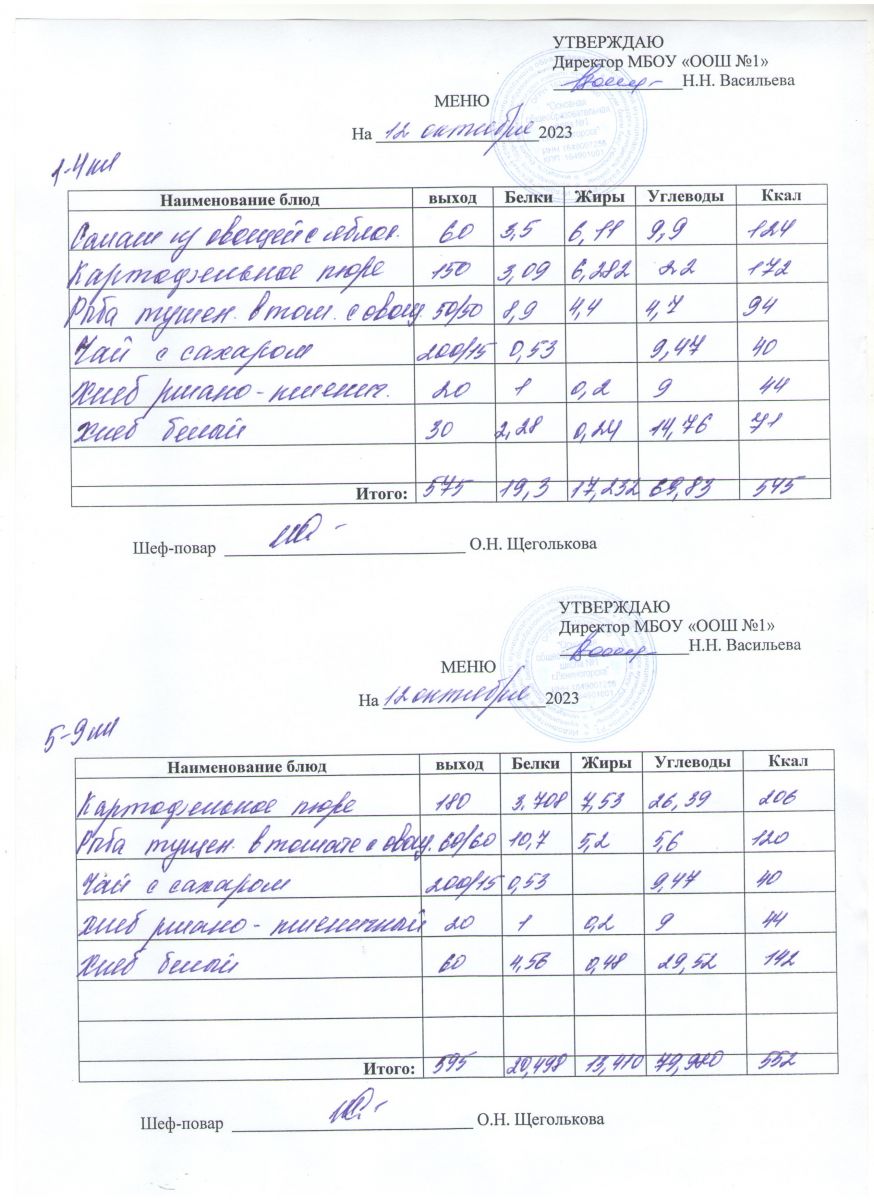 УТВЕРЖДАЮ
Директор МБОУ «ООШ №1»
Н.Н. Васильева
МЕНЮ
На 12 октября 2023
1-4 кл
Наименование блюд выход Белки Жиры Углеводы Ккал
Салат из овощей с яблок. 60 3,5 6,11 9,9 124
Картофельное пюре 150 3,09 6,282 22 172
Рыба тушен. в том. с овощ. 50/50 8,9 4,4 4,7 94
Чай с сахаром 200/15 0,53 9,47 40
Хлеб ржано-пшенич. 20 1 0,2 9 44
Хлеб белый 30 2,28 0,24 14,76 71
Итого: 575 19,3 17,232 69,83 545
Шеф-повар О.Н. Щеголькова
УТВЕРЖДАЮ
Директор МБОУ «ООШ №1»
Н.Н. Васильева
МЕНЮ
На 12 октября 2023
5-9 кл
Наименование блюд выход Белки Жиры Углеводы Ккал
Картофельное пюре 180 3.708 7,53 26,39 206
Рыба тущен. в томате с овощ. 60/60 10,7 5,2 5,6 120
Чай с сахаром 200/15 0,53 9,47 40
Хлеб ржано-пшеничный 20 1 0,2 9 44
Хлеб белый 60 4,56 0,48 29,52 142
Итого: 595 20,498 13,410 79,980 552
Шеф-повар О.Н. Щеголькова